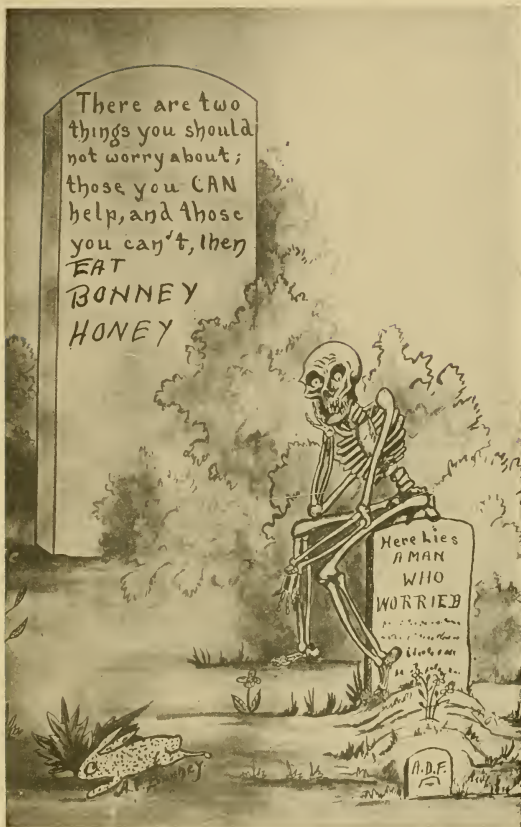 There are two
things you should
not worry about;
those you CAN
help, and those
you can't, then
EAT
BONNEY
HONEY
Here Lies
A MAN
WHO
WORRIED
A.D.F.
Bonney